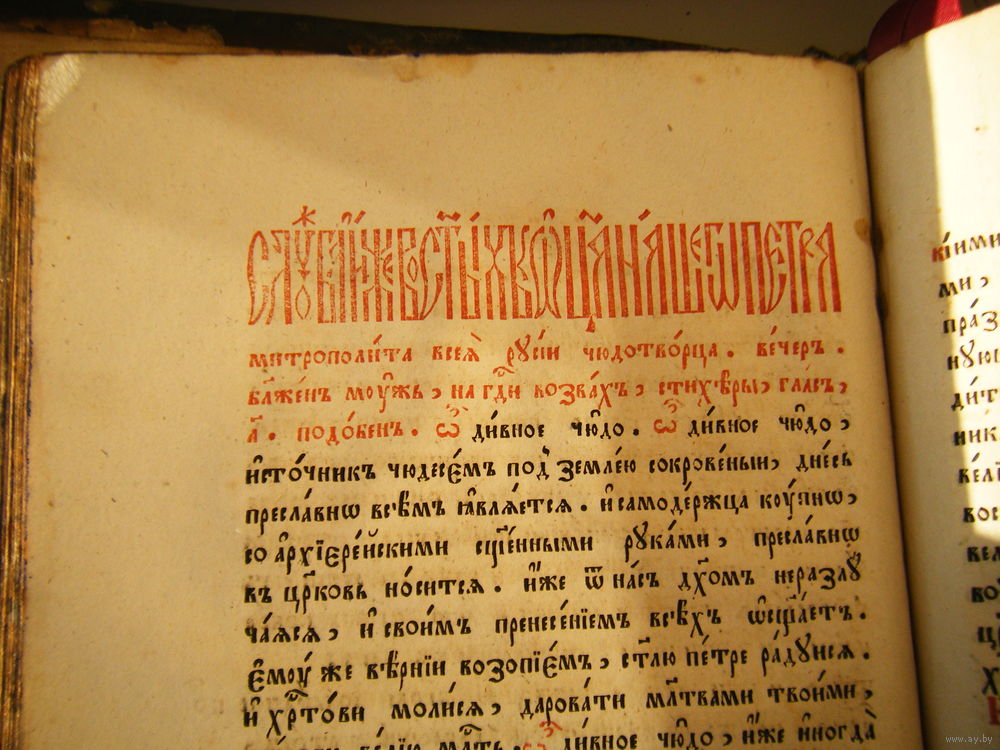 слꙋ́жба и҆́же во ст҃ы́хъ ѻ҆ц҃а̀ на́шегѡ петра̀
митрополи́та всеѧ̀ рꙋсі́и чюдотво́рца. ве́черъ.
бл҃же́нъ моу́жъ, на гд҇и возва́хъ, стихе́ры, гла́съ,
а҃. подо́бенъ. ѽ ди́вное чю́до. ѽ ди́вное чю́до,
и҆сто́чникъ чюдесе́мъ под̾ земле́ю сокрове́ныи, дне́сь
пресла́внѡ все́мъ ꙗ҆влѧ́етсѧ. и҆ самоде́ржца коу́пнѡ,
со а҆рхїере́йскими сщ҃е́нными рꙋка́ми, пресла́внѡ
въ цр҃ковь но́ситсѧ. и҆́же ѿ на́съ дх҃омъ неразлꙋ
ча́ѧсѧ, и҆ свои́мъ пренесе́нїемъ все́хъ ѡ҆сщ҃а́етъ.
є҆моу́ же ве́рнїи возопїе́мъ, ст҃лю пе́тре ра́дꙋисѧ.
и҆ хрⷭ҇то́ви моли́сѧ, дарова́ти мл҃твами твои́ми,
ве́лїю мл҇ть. ѽ ди́вное чю́до, и҆́же и҆ногда̀
кі́ими
ми,
пра́з
нꙋю
ди́т
ник
ве́лї
вос
вел
во
www.ay.by